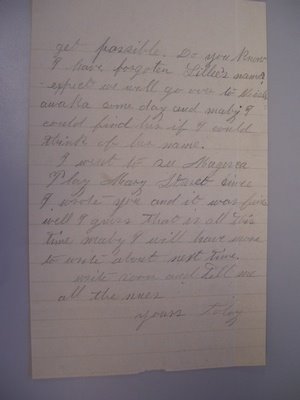 get possible. Do you know
I have forgoten Lillie's name?
expect we will go over to Mish
awaka some day and mabey I
could find her if I could
think of her name.
I went to see
Play Mary Stuart since
I wrote you and it was fine
well I guess that is all this
time mabey I will have more
to write about next time.
write soon and tell me
all the news
yours